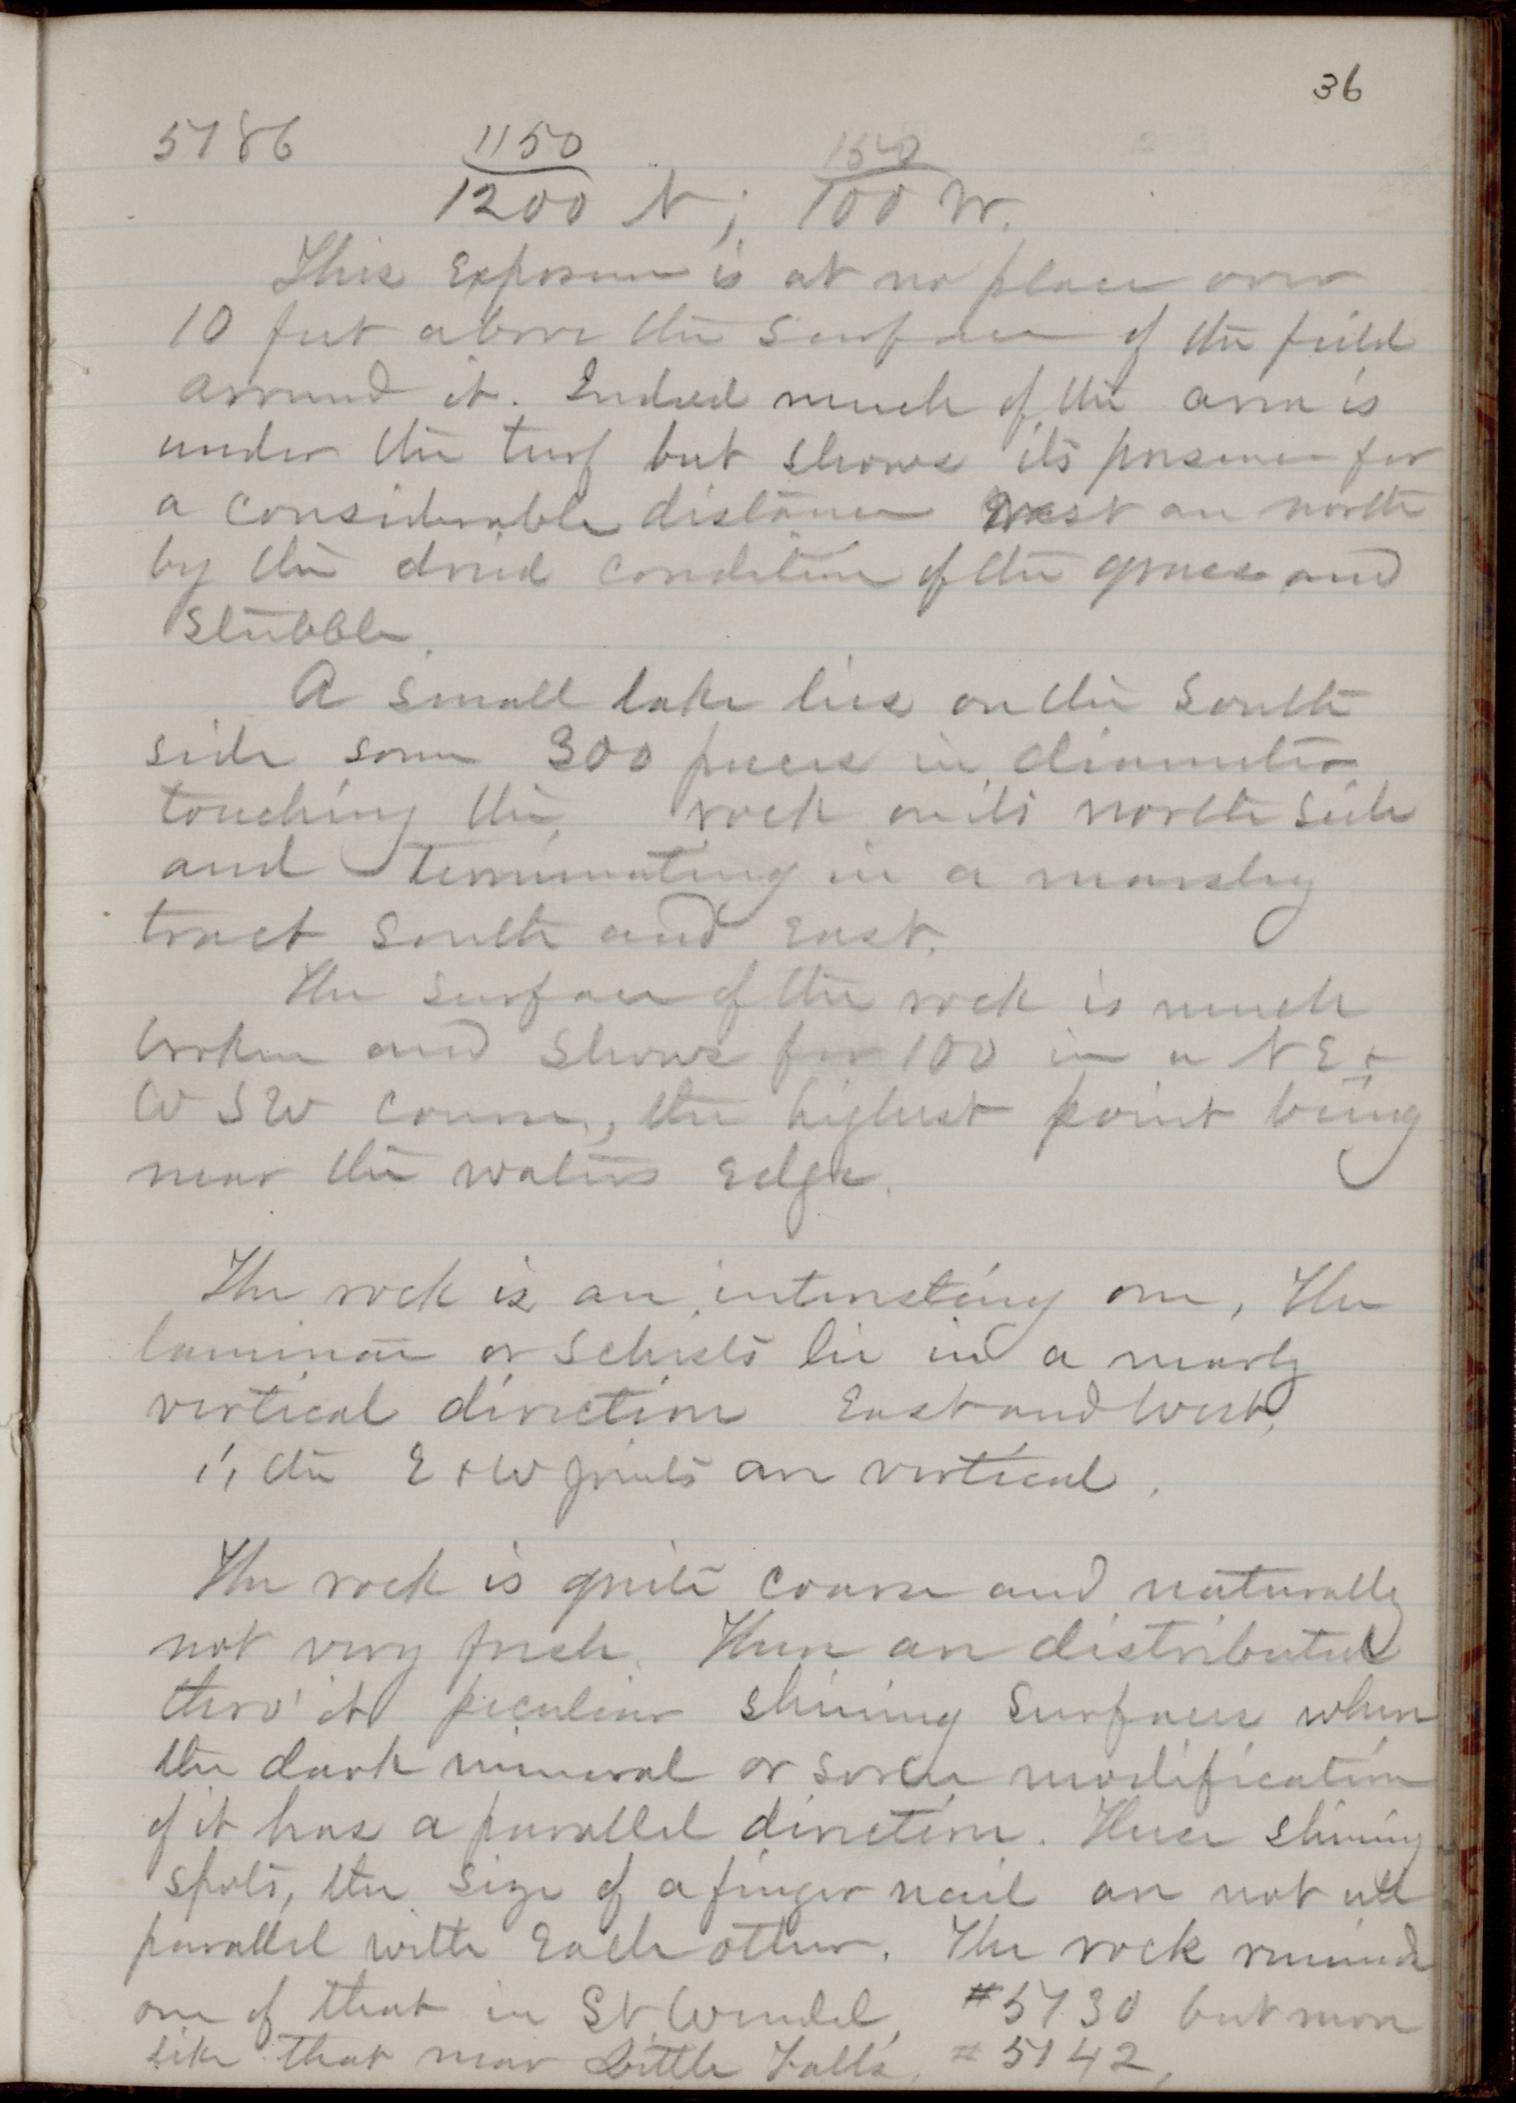 36
5186 1150 1540
1200 N; 100 W.
This Exposure is at no place over
10 feet above the surface of the field
around it. Indeed much of the area is
under the turf but shows its presence for
a considerable distance west an north
by the dried condition of the grass and
stubble.
A small lake lies on the South
side some 300 paces in diameter
touching the rock on its north side
and terminating in a marshy
tract South and East.
The surface of the rock is much
broken and shows for 100 in a NE &
W SW course, the highest point being
near the waters Edge.
The rock is an interesting one, The
laminae or Schists lie in a nearly
vertical direction East and West,
i, the E & W joints are vertical.
The rock is quite coarse and naturally
not very fresh. There are distributed
thro' it peculiar shining surfaces where
the dark mineral or some modification
of it has a parallel direction. These shining
spots, the size of a finger nail are not all
parallel with Each other. The rock reminds
one of that in St. Wendel, #5130 but more
like that near Little Falls, #5142,